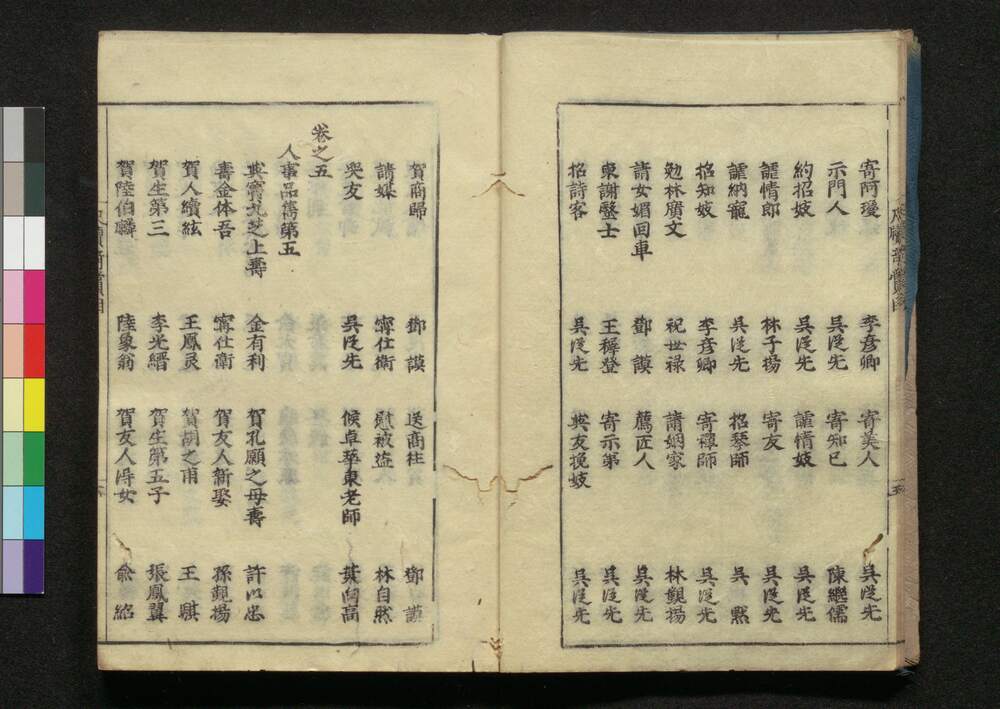 寄阿璦 李彥卿 寄美人 吳從先
示門人 吳從先 寄知已 陳繼儒
約招妓 吳從先 謔情妓 吳從先
謔情郎 林子揚 寄友 吳從先
謔納寵 吳從先 招琴師 吳默
招知妓 李彥卿 寄禪師 吳從先
勉林廣文 祝世祿 謝姻家 林覲揚
請女媚回車 鄧謨 薦匠人 吳從先
柬謝醫士 王穉登 寄示弟 吳從先
招詩客 吳從先 與友挽妓 吳從先
賀商歸 鄧謨 送商往 鄧謨
請媒 甯仕衛 慰被盜 林自然
哭友 吳從先 候卓華東老師 葉向高
卷之五
人事品雋第五
與甯九芝上壽 金有利 賀孔願之母壽 許以忠
壽金体吾 甯仕衛 賀友人新娶 孫覲揚
賀人續絃 王鳳灵 賀胡之甫 王騏
賀生第三 李光縉 賀生第五子 張鳳翼
賀陸伯麟 陸象翁 賀友人得女 俞紹